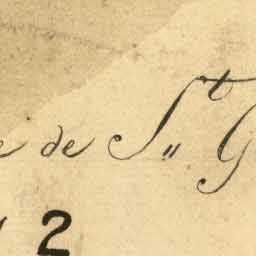 e de S.t G
2